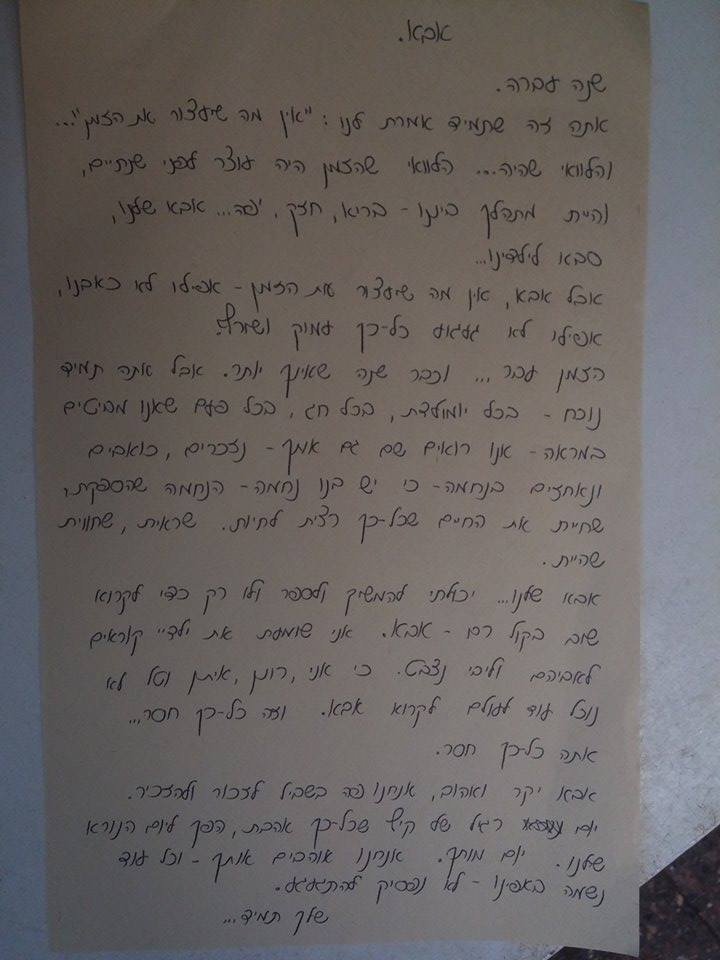 אבא.
שנה עברה.
אתה זה שתמיד אמרת לנו: "אין מה שיעצור את הזמן"...
והלוואי שהיה... הלוואי שהזמן היה עוצר לפני שנתיים,
והיית מתהלך ביננו - בריא, חזק, יפה... אבא שלנו,
סבא לילדינו...
אבל אבא, אין מה שיעצור את הזמן - אפילו לא כאבנו,
אפילו לא געגוע כל-כך עמוק ושורף.
הזמן עבר... וכבר שנה שאינך יותר. אבל אתה תמיד
נוכח - בכל יומולדת, בכל חג, בכל פעם שאנו מביטים
במראה - אנו רואים שם גם אותך - נזכרים, כואבים
ונאחזים בנחמה - כי יש בנו נחמה - הנחמה שהספקת,
שחיית את החיים שכל-כך רצית לחיות. שראית, שחווית
שהיית.
אבא שלנו... יכולתי להמשיך ולספר ולו רק כדי לקרוא
שוב בקול רם - אבא. אני שומעת את ילדיי קוראים
לאביהם וליבי נצבט. כי אני, רונן, איתן וטל לא
נוכל עוד לעולם לקרוא אבא. וזה כל-כך חסר...
אתה כל-כך חסר.
אבא יקר ואהוב, אנחנו פה בשביל לזכור ולהזכיר.
יום רגיל של קיץ שכל-כך אהבת, הפך ליום הנורא
שלנו. יום מותך. אנחנו אוהבים אותך - וכל עוד
נשמה באפינו - לא נפסיק להתגעגע.
שלך תמיד...